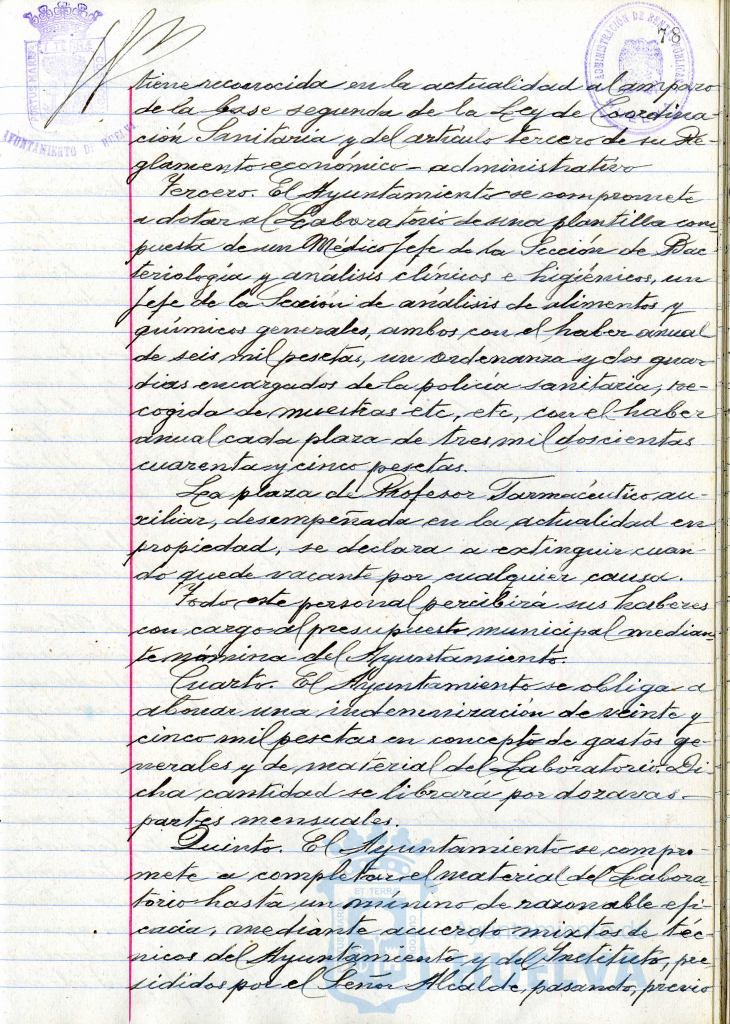 78
AYUNTAMIENTO DE HUELVA
ADMINISTRACIÓN DE RENTAS PÚBLICAS
tiene reconocida en la actualidad al amparo
de la base segunda de la Ley de Coordina-
ción Sanitaria y del artículo tercero de su Re-
glamento económico-administrativo
Tercero. El Ayuntamiento se compromete
a dotar al Laboratorio de una plantilla com-
puesta de un Médico Jefe de la Sección de Bac-
teriología y análisis clínicos e higiénicos, un
Jefe de la Sección de análisis de alimentos y
químicos generales, ambos con el haber anual
de seis mil pesetas, un ordenanza y dos guar-
dias encargados de la policía sanitaria, re-
cogida de muestras etc, etc, con el haber
anual cada plaza de tres mil doscientas
cuarenta y cinco pesetas.
La plaza de Profesor Farmacéutico au-
xiliar, desempeñada en la actualidad en
propiedad, se declara a extinguir cuan-
do quede vacante por cualquier causa.
Todo este personal percibirá sus haberes
con cargo al presupuesto municipal median-
te nómina del Ayuntamiento.
Cuarto. El Ayuntamiento se obliga a
abonar una indemnización de veinte y
cinco mil pesetas en concepto de gastos ge-
nerales y de material del Laboratorio. Di-
cha cantidad se librará por dozavas
partes mensuales.
Quinto. El Ayuntamiento se compro-
mete a completar el material del Labora-
torio hasta un mínino de razonable efi-
cacia, mediante acuerdo mixtos de téc-
nicos del Ayuntamiento y del Instituto, pre-
sididos por el Señor Alcalde, pasando, previo
ET TERRA
Ayuntamiento de
HUELVA